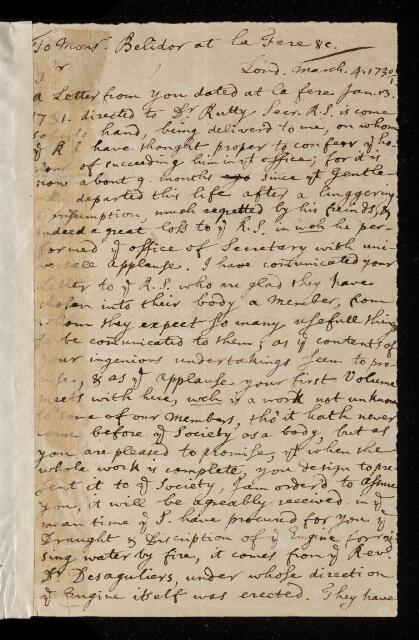 To Monsr. Belidor at la Fere &c.
Lond. March. 4. 1730/1
a Letter from you dated at la fere Jan. 13.
1731. directed to Dr Rutty Secr. R.S. is come
hand, being deliverd to me, on whom
ye R S have thought proper to confer ye ho-
of succeeding him in yt office; for it is
now about 9. months ago since yt Gentle-
departed this life after a lingering
much regretted by his freinds, &
indeed a great loss to ye R.S. in wch he per-
formed ye office of Secretary with uni-
applause. I have comunicated your
Letter to ye R.S. who are glad they have
chosen into their body a Member, from
whom they expect so many usefull things
to be comunicated to them, as ye contents of
your ingenious undertakings seem to pro-
mise, & as ye applause your first Volume
meets with here, wch is a work not unknown
to some of our Members, tho' it hath never
come before ye Society as a body, but as
you are pleased to promise, yt when the
whole work is complete, you design to pre
sent it to ye Society, I am orderd to assure
you, it will be agreably received. in ye
mean time ye S. have procured for you ye
Draught & Discription of ye Engine for rai
sing water by fire, it comes from ye Revd.
Dr Desaguliers, under whose direction
ye Engine itself was erected. They have